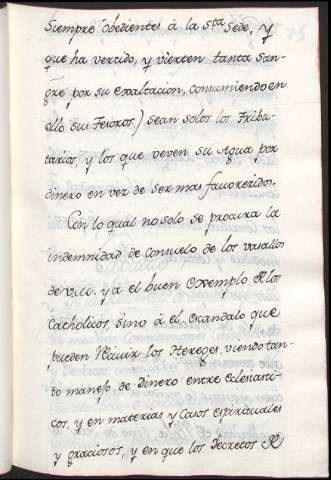 siempre obedientes à la Sta. Sede, y
que ha vertido, y vierten tanta San-
gre por su exaltacion, consumiendo en
ello sus Tesoros) sean solos los Tribu-
tarios, y los que veven su Agua por
dinero en vez de ser mas favorecidos.
Con lo qual no solo se procura la
indemnidad de consuelo de los vasallos
de V.M. y à el buen Exemplo de los
Catholicos, sino à el escandalo que
pueden recivir los Hereges, viendo tan-
to manejo de Dinero entre Eclesiasti-
cos, y en materias y Casos espirituales
y graciosos, y en que los Decretos